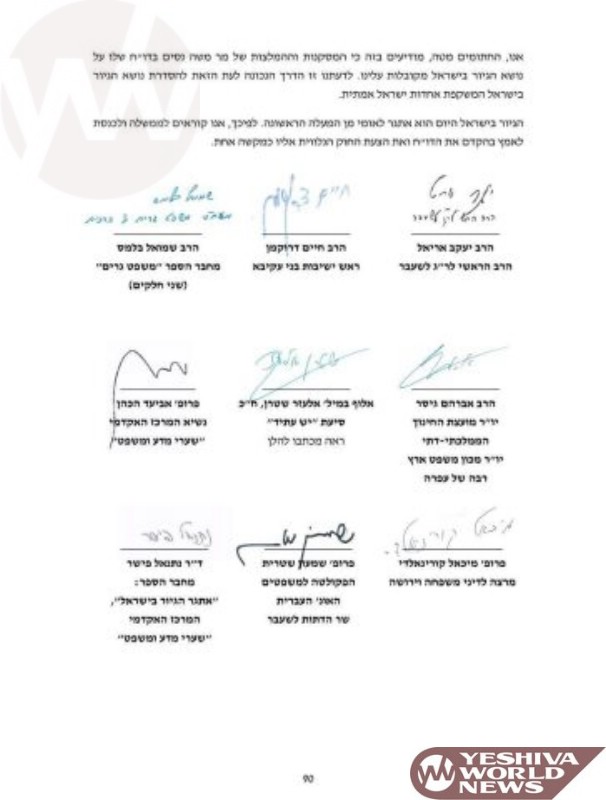 אנו, החתומים מטה, מודיעים בזה כי המסקנות וההמלצות של מר משה נסים בדו״ח שלו על
נושא הגיור בישראל מקובלות עלינו. לדעתנו זו הדרך הנכונה לעת הזאת להסדרת נושא הגיור
בישראל המשקפת אחדות ישראל אמתית.
הגיור בישראל היום הוא אתגר לאומי מן המעלה הראשונה. לפיכך, אנו קוראים לממשלה ולכנסת
לאמץ בהקדם את הדו״ח ואת הצעת החוק הנלווית אליו כמקשה אחת.
הרב יעקב אריאל
הרב הראשי לר״ג לשעבר
חיים דרוקמן
הרב חיים דרוקמן
ראש ישיבות בני עקיבא
הרב שמואל בלמס
מחבר הספר ״משפט גרים״
(שני חלקים)
הרב אברהם גיסר
יו״ר מועצת החינוך
הממלכתי-דתי
יו״ר מכון משפט ארץ
רבה של עפרה
אלוף במיל׳ אלעזר שטרן, ח״כ
סיעת ״יש עתיד״
ראה מכתבו להלן
פרופ׳ אביעד הכהן
נשיא המרכז האקדמי
״שערי מדע ומשפט״
מיכאל קורינאלדי
פרופ׳ מיכאל קורינאלדי
מרצה לדיני משפחה וירושה
פרופ׳ שמעון שטרית
הפקולטה למשפטים
האונ׳ העברית
שר הדתות לשעבר
נתנאל פישר
ד״ר נתנאל פישר
מחבר הספר:
״אתגר הגיור בישראל״,
המרכז האקדמי
״שערי מדע ומשפט״
90
YESHIVA
WORLD
NEWS